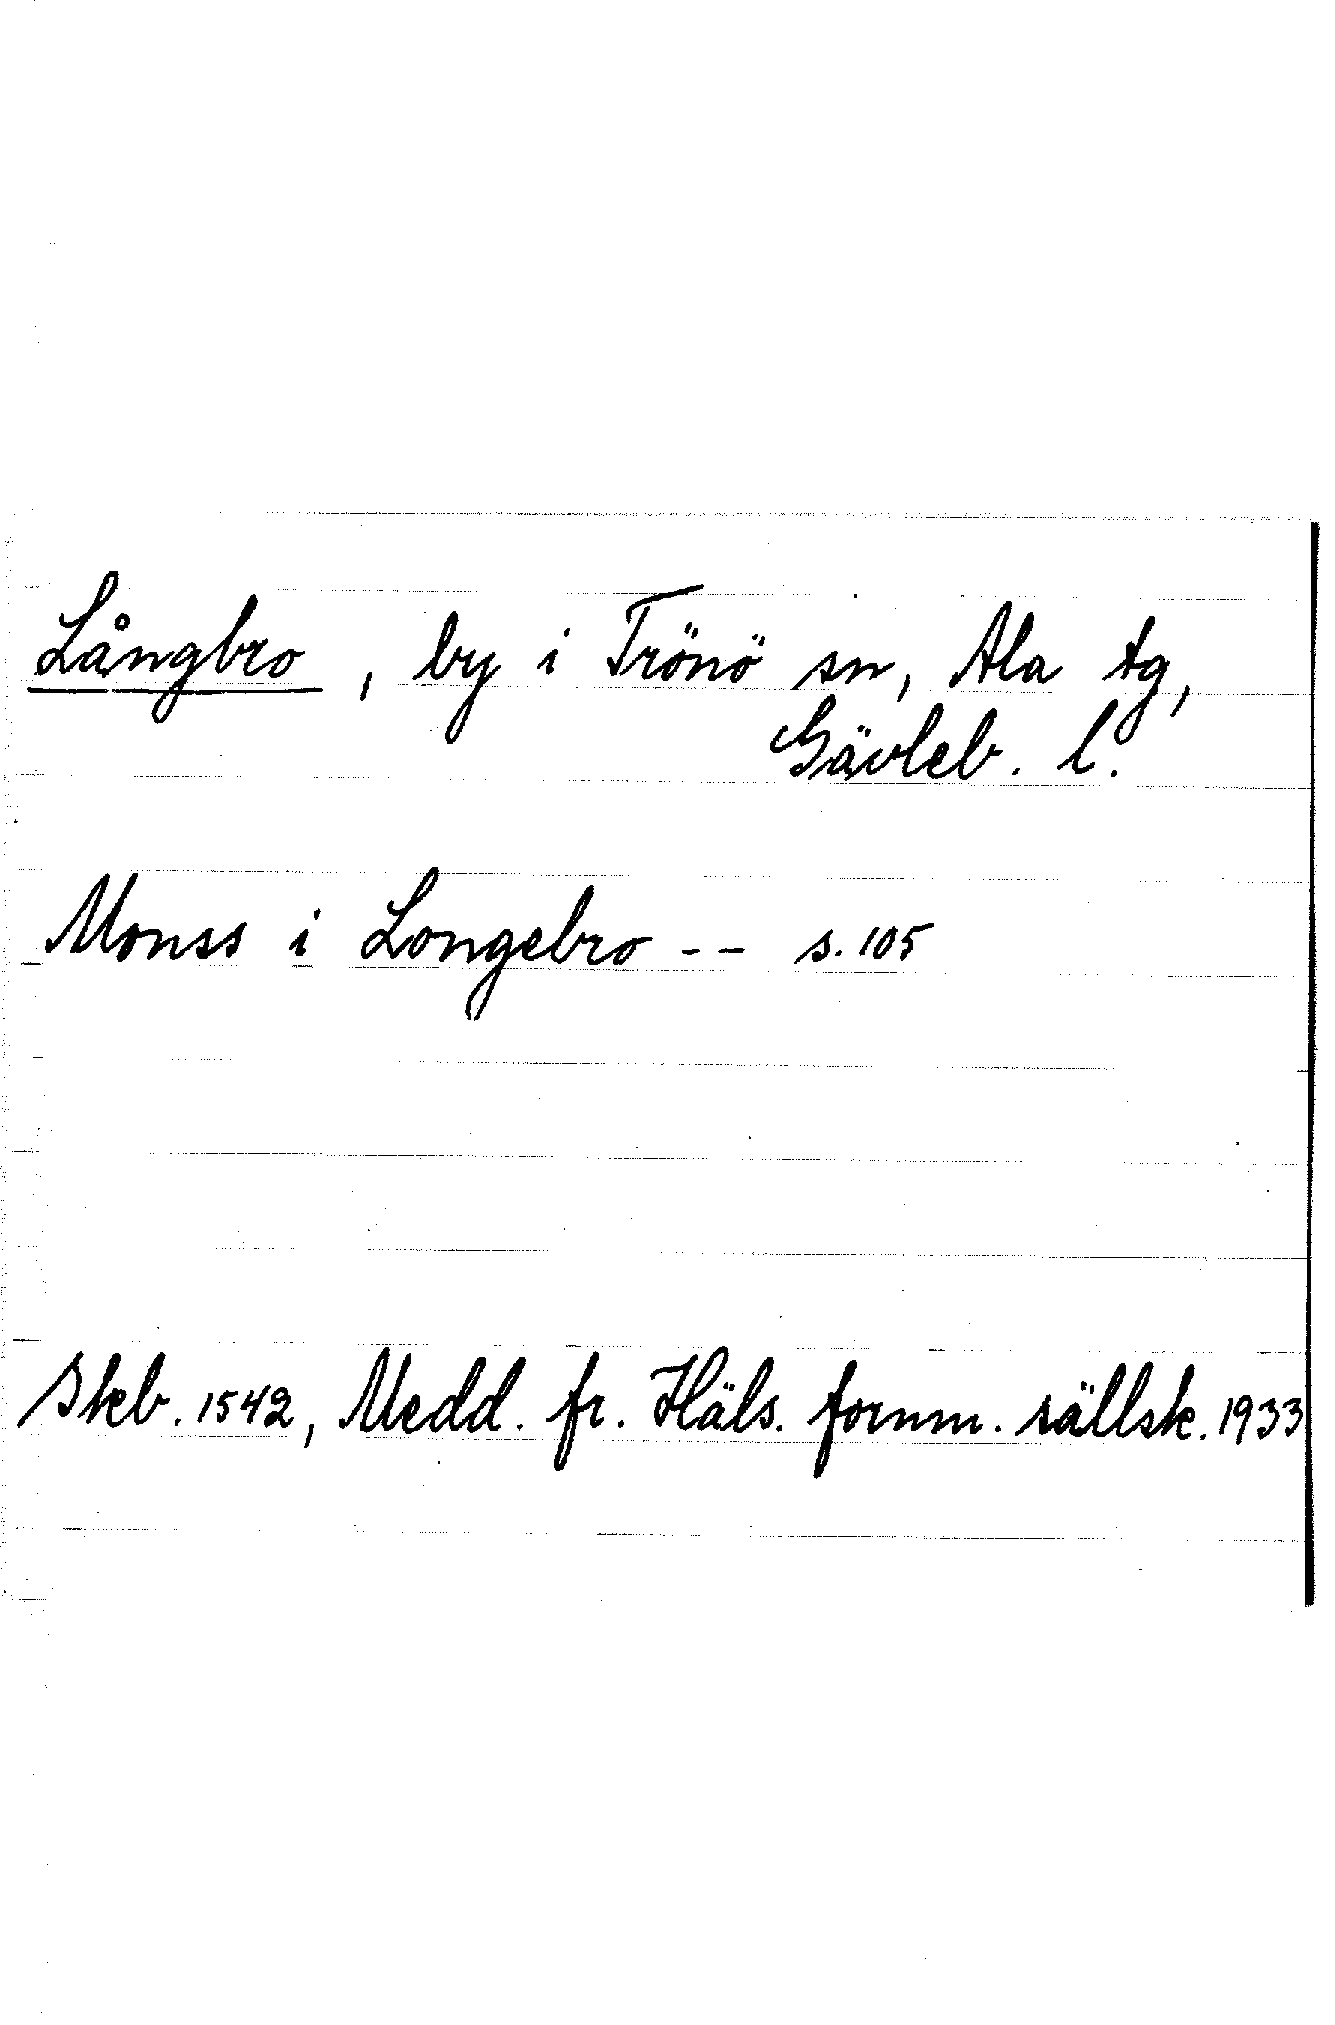 Långbro, by i Trönö sn, Ala tg,
Gävleb. l.
Monss i Longebro -- s. 105
Skeb. 1542, Medd. fr. Häls. fornm. sällsk. 1933